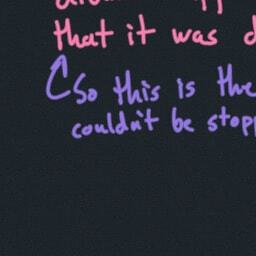 that it was
So this is the
couldn't be stopp